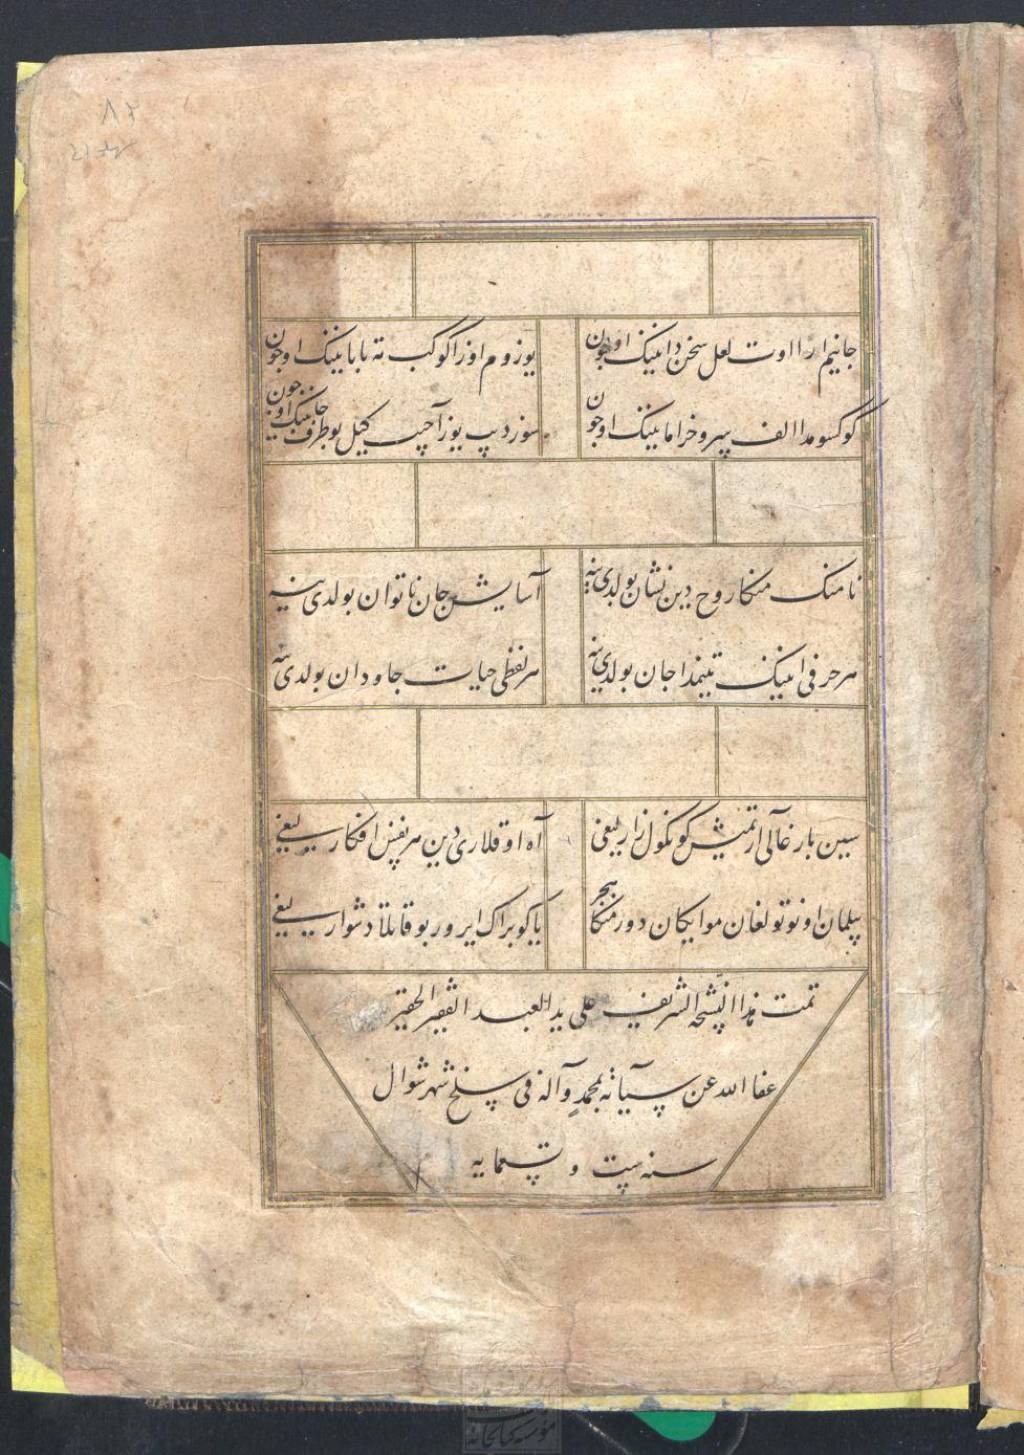 ۸۲
جانیم ارا اوت لعل سخن دانینک اوجون
یوزوم اوزا کوکب ته بابانینک اوجون
کوکسومدا الف سرو خرامانینک اوجون
سوزدیپ یوز آچیب کیل بو طرف جانینک اوجون
نامنک منکا روح دین نشان بولدی ینه
آسایش جان ناتوان بولدی ینه
هر حرفی انینک تنیمدا جان بولدی ینه
هر لفظی حیات جاودان بولدی ینه
سین بارغالی ارتمیش کونکول زارلیغی
آه اوقلاری دین هر نفس افکارلیغی
بیلمان اونوتولغان مو ایکان دور منکا هجر
یا کوبراک ایرور بو قاتلا دشوارلیغی
تمت هذا النسخة الشریف علی ید العبد الفقیر الحقیر
عفا الله عن سیآته بمحمد وآله فی سلخ شهر شوال
سنه ست و تسعمایه